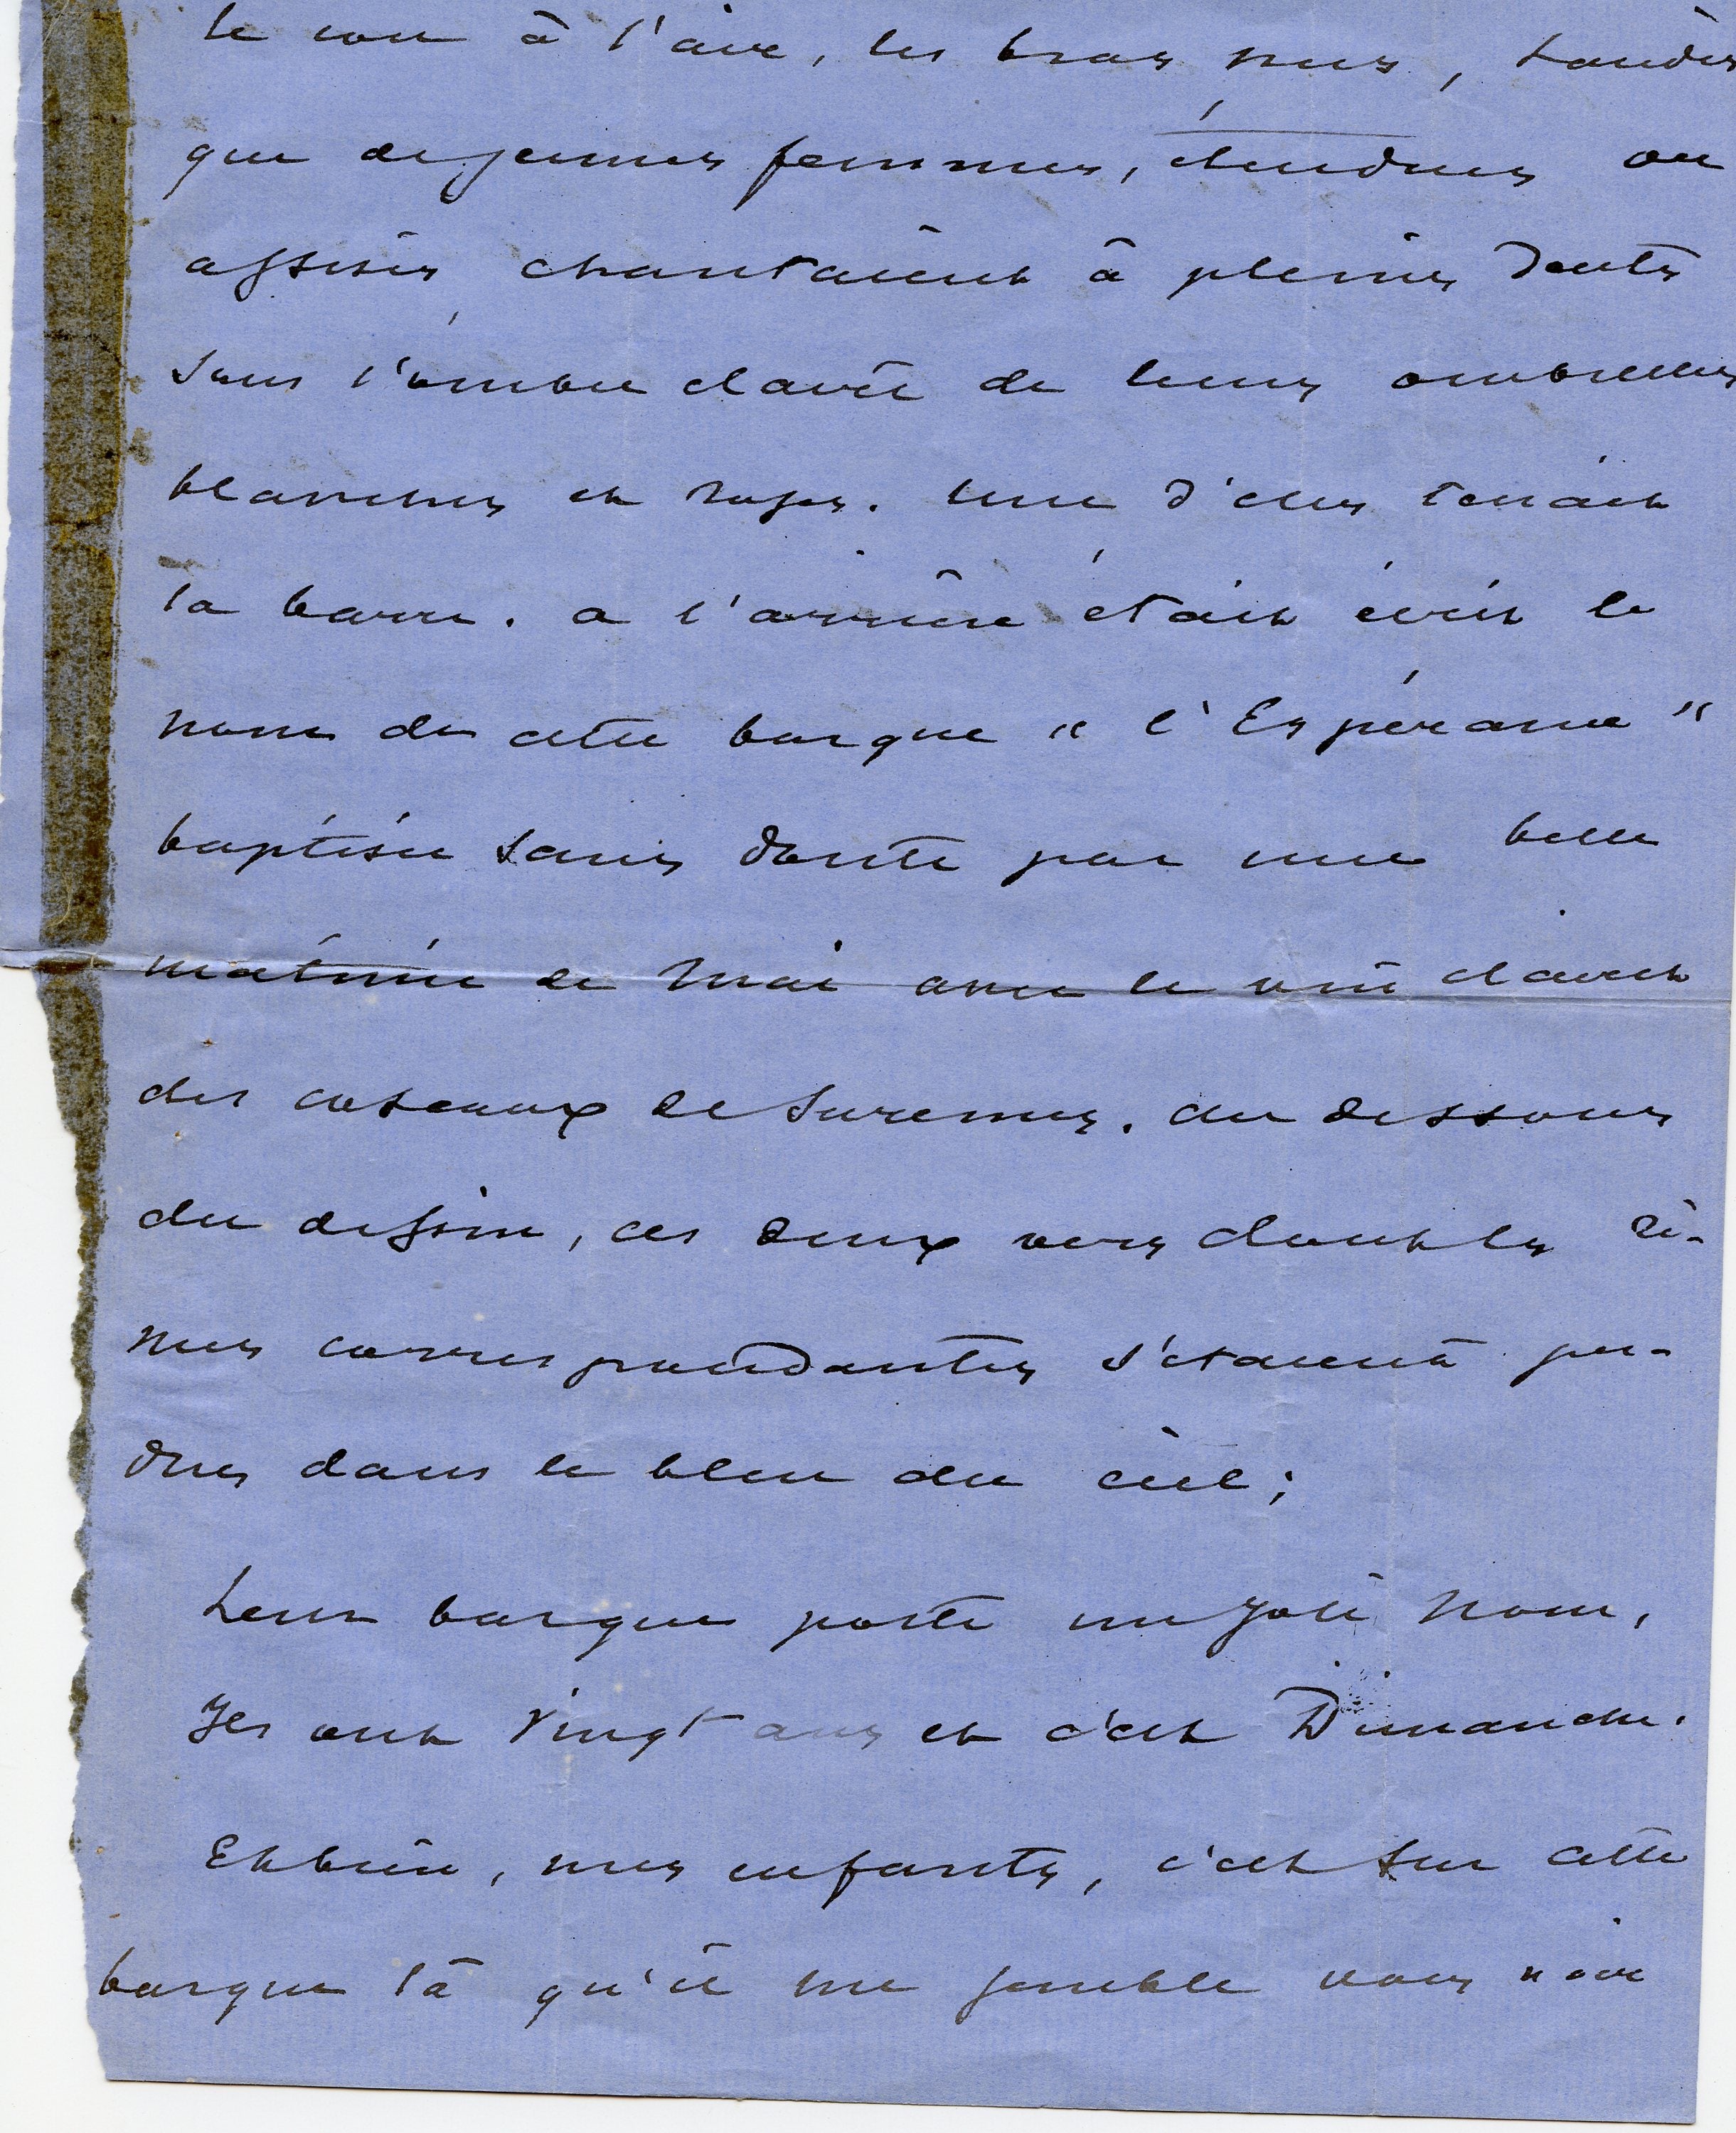 le cou à l'air, les bras nus, tandis
que de jeunes femmes, étendues ou
assises, chantaient à pleines dents
sous l'ombre claire de leurs ombrelles
blanches et roses. Une d'elles tenait
la barre. a l'arrière était écrit le
nom de cette barque "l'Espérance"
baptisée sans doute par une belle
matinée de Mai avec le vin clairet
des coteaux de Suresnes. au dessous
du dessin, ces deux vers dont les ri-
mes correspondantes s'étaient per-
dues dans le bleu du ciel;
Leur barque porte un joli nom,
Ils ont vingt ans et c'est Dimanche.
Eh bien, mes enfants, c'est sur cette
barque là qu'il me semble vous voir